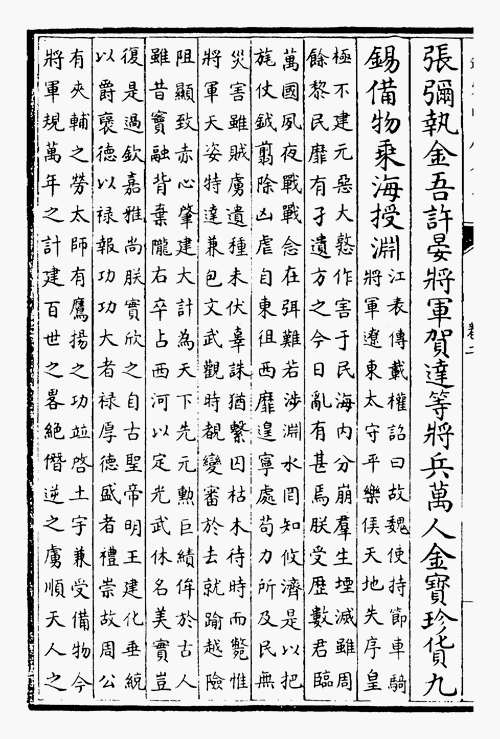 張彌執金吾許晏將軍賀達等將兵萬人金寶珍貨九
錫備物乘海授淵
江表傳載權詔曰故魏使持節車騎
將軍遼東太守平樂侯天地失序皇
極不建元惡大憝作害于民海内分崩羣生堙滅雖周
餘黎民靡有孑遺方之今日亂有甚焉朕受歷數君臨
萬國夙夜戰戰念在弭難若涉淵水罔知攸濟是以把
旄仗鉞翦除凶虐自東徂西靡遑寧處苟力所及民無
災害雖賊虜遺種未伏辜誅猶繫囚枯木待時而斃惟
將軍天姿特達兼包文武觀時覩變審於去就踰越險
阻顯致赤心肇建大計為天下先元勳巨績侔於古人
雖昔竇融背棄隴右卒占西河以定光武休名美實豈
復是過欽嘉雅尚朕實欣之自古聖帝明王建化垂統
以爵褒德以禄報功功大者禄厚德盛者禮崇故周公
有夾輔之勞太師有鷹揚之功並啓土宇兼受備物今
將軍規萬年之計建百世之畧絶僭逆之虜順天人之